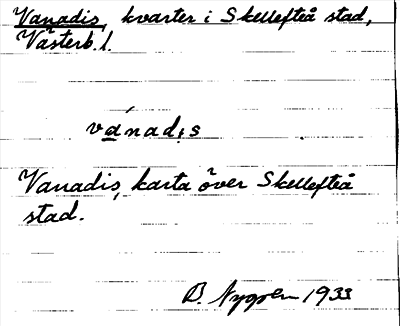 Vanadis, kvarter i Skellefteå stad,
Västerb. l.
vánadis
Vanadis, karta över Skellefteå
stad.
B. Nygren 1933